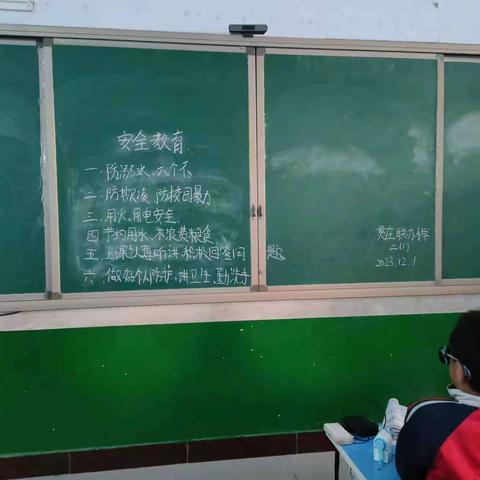 安全教育
一.防溺水、六个不
二.防欺凌 防校园暴力
三.用火、用电安全.
四 节约用水、不浪费粮食
五.上课认真听讲.积极回答问题
六.做好个人防护.讲卫生、勤洗手
庄联办小学
二(1)
2023.12.1